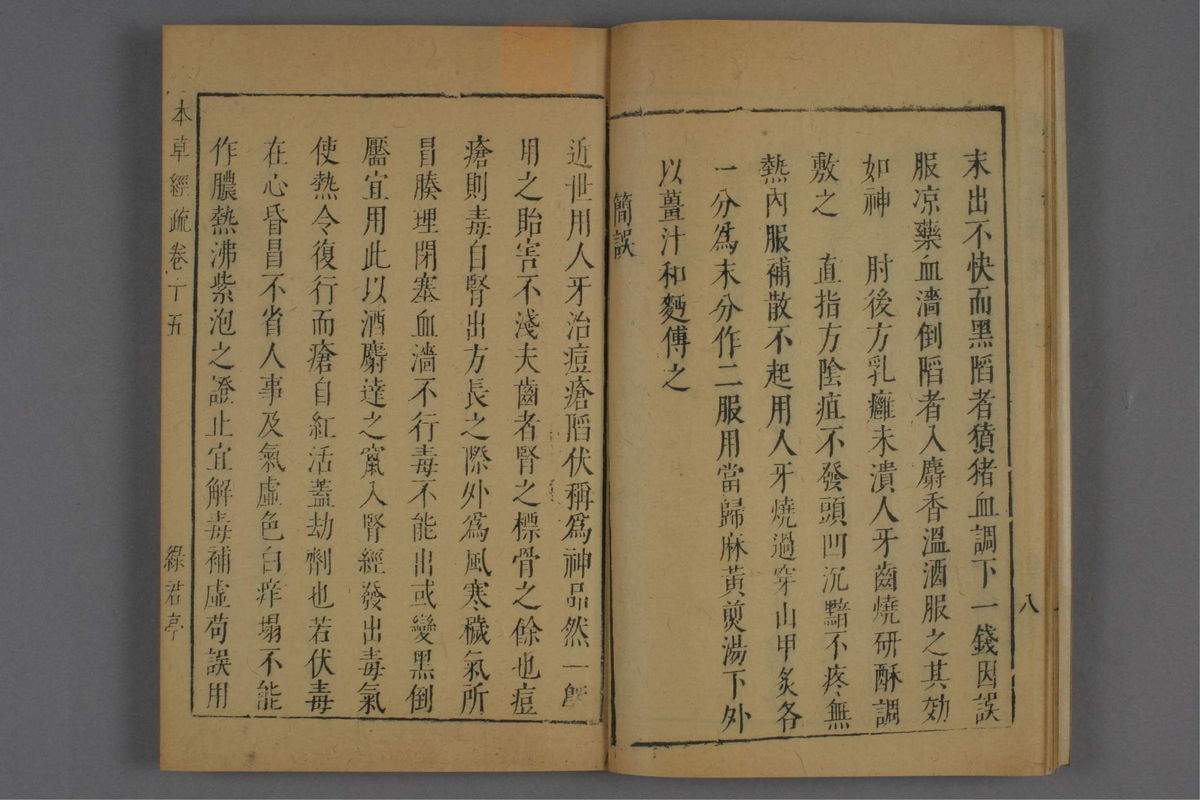 末出不快而黑陷者㹠猪血調下一錢因誤
服凉藥血濇倒陷者入麝香溫酒服之其効
如神　肘後方乳癰未潰人牙齒燒研酥調
敷之　直指方陰疽不發頭凹沉黯不疼無
熱內服補散不起用人牙燒過穿山甲炙各
一分爲末分作二服用當歸麻黃煎湯下外
以薑汁和麪傅之
簡誤
八
近世用人牙治痘瘡陷伏稱爲神品然一槩
用之貽害不淺夫齒者腎之標骨之餘也痘
瘡則毒自腎出方長之際外爲風寒穢氣所
冒腠理閉塞血濇不行毒不能出或變黑倒
靨宜用此以酒麝達之竄入腎經發出毒氣
使熱令復行而瘡自紅活蓋劫劑也若伏毒
在心昏冒不省人事及氣虛色白痒塌不能
作膿熱沸紫泡之證止宜解毒補虛苟誤用
本草經疏卷十五
綠君亭